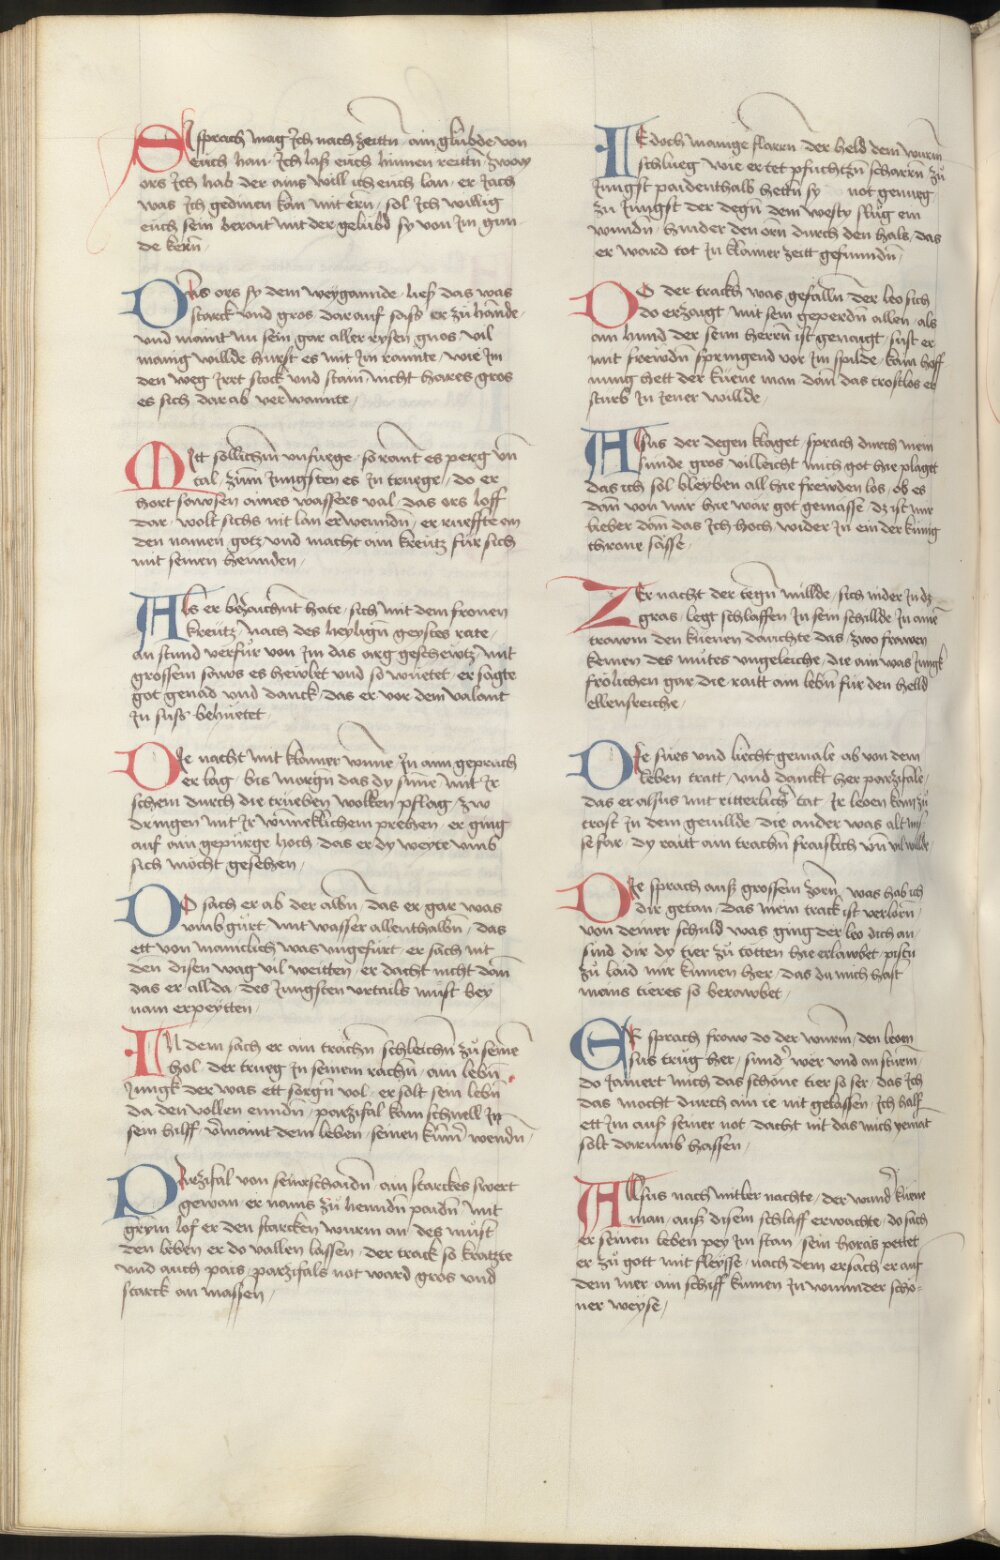 SI sprach mag ich nach zeittn ain glübde von
euch han ich laß euch hinnen reittn zway
ors ich hab der ains will ich euch lan er jach
was ich gedinen kan mit ern sol ich willig
euch sein berait mit der gelübd sy von im gun
de kern
Das ors sy dem weygannde ließ das was
starck vnd gros darauf sass er zü hannde
vnd mant nu sein gar aller rysen gnos vil
manig willde hurst es mit im rannte wie im
den weg irret stock vnd stain nicht hares gros
es sich dar ab verwannte
Mitt sollichem vnfuege so rant es perg vn̄
tal zum jungsten es in truege do er
hort sawsen aines wassers val das ors loff
dar wolt sichs nit lan erwenndn er rueffte an
den namen gotz vnd macht ain kreutz für sich
mit seinen hennden
Als er bezaichent hate sich mit dem fronen
kreutz nach des heylign geystes rate
an stund verfür von im das arg geschewtz mit
grossem saws es hewlet vnd so wüetet er sagte
got genad vnd danck das er vor dem valant
in suss behüetet
Die nacht mit klainer wunne in ainn geprach
er lag bis morgn das dy sunne mit ir
schein durch die trüeben wolken pflag zw
dringen mit ir wünneklichem prehen er ging
auf ain gepürge hoch das er dy weyte vmb
sich mocht gesehen
Do sach er ab der albn das er gar was
vmbgürt mit wasser allenthalbn das
ett von manclich was vngefürt er sach nit
den disen wag vil weitten er dacht nicht dan
das er allda des jungsten vrtails müst bey
nam erpeytten
In dem sach er ain trachn schleichn zü seine
hol der trueg in seinem rachn ain lebn
jungk der was ett sorgn vol er solt sein lebn
da den wollen enndn parzifal kam schnell in
sein hilff vermaint dem leben seinen kumer wendn
Parzifal von seinr schaidn ain starckes swert
gewan er nams zü henndn paidn mit
grym lof er den starcken wurm an des müst
den leben er do vallen lassen der track so kratzte
vnd auch pais parzifals not ward gros vnd
starck an massen
Iedoch mange slarrn der held dem wurm
schlueg wie er tet pfuchtzn scharrn zu
jungst paidenthalb hettn sy not genueg
zu jungst der degn dem westy slüg ein
wundn hinder den orn durch den hals das
er ward tot in klainer zeitt gefunndn
Do der trackh was gefalln der leo sich
do erzaigt mit sein geperdn allen als
ain hund der seim herrn ist genaigt sust er
mit frewdn springend vor im spilde kain hoff
nung hett der küene man dan das trostlos er
sturb in jener willde
Alsus der degen klaget sprach durch mein
sunde gros villeicht mich got hie plaget
das ich sol bleyben all hie frewden los ob es
dan von mir hie wär got gemässe dz ist mir
lieber dan das ich hoch wider in ein der künig
throne sässe
Zer nacht der tegn millde sich nider in dz
gras legt schlaffen in sein schillde in aine
trawm den küenen dauchte das zwo frawen
kemen des mütes vngeleiche die ain was jungk
frölichen gar die raitt ain lebn für den helld
ellensreiche
Die sües vnd liecht gemale ab von dem
leben tratt vnd danckt her parzifale
das er alsus mit ritterlicher tat ir leoen kam zu
trost in dem gewillde die ander was alt
se far dy raitt ain trachn fraislich vn̄ vil wilde
Die sprach auß grossem zorn was hab ich
dir getan das mein track ist verlorn
von deiner schuld was ging der leo dich an
sind dir dy tier zü totten hie erlawbet pistu
zü laid mir kumen her das du mich hast
meins tieres so berawbet
Er sprach fraw do der wurm den leoen
sus trüg her sunder wer vnd an sturm
do jamert mich das schöne tier so ser das ich
das mocht durch ain ie nit gelassen ich half
ett im auß seiner not dacht nit das mich yemat
solt darumb hassen
Alsus nach mitler nachte der wunder küene
man auß disem schlaff erwachte do sach
er seinen leben pey im stan sein horas pettet
er zü gott mit fleysse nach dem ersach er auf
dem mer ain schiff kumen in wunnder schö-
ner weyse